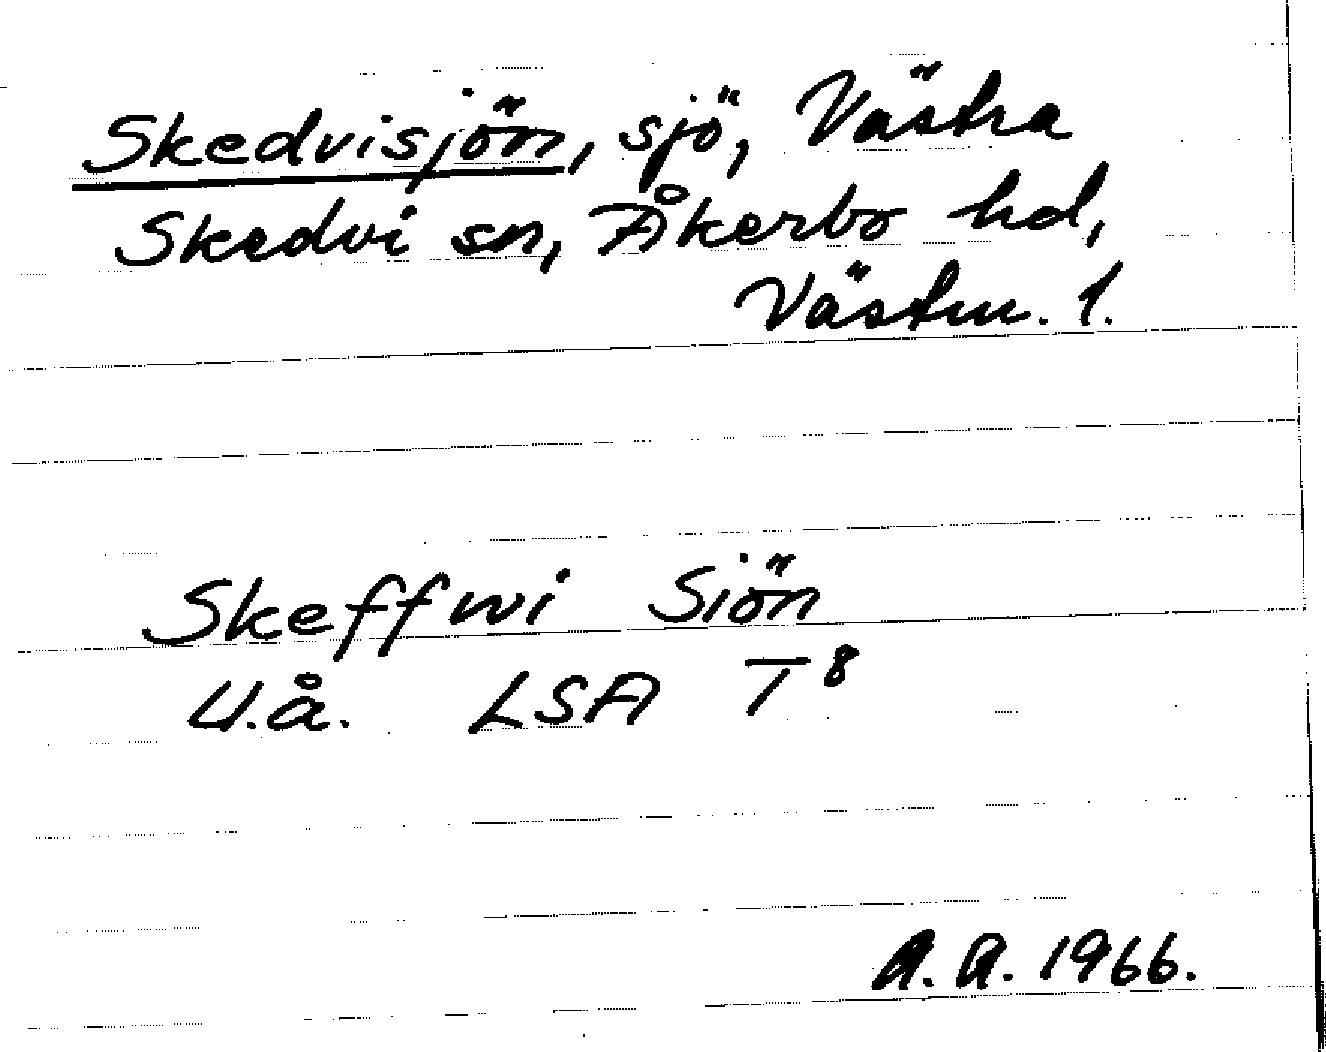 Skedvisjön, sjö, Västra
Skedvi sn, Åkerbo hd,
Västm. l.
Skeffwi Siön
U.å. LSA T 8
A. A. 1966.